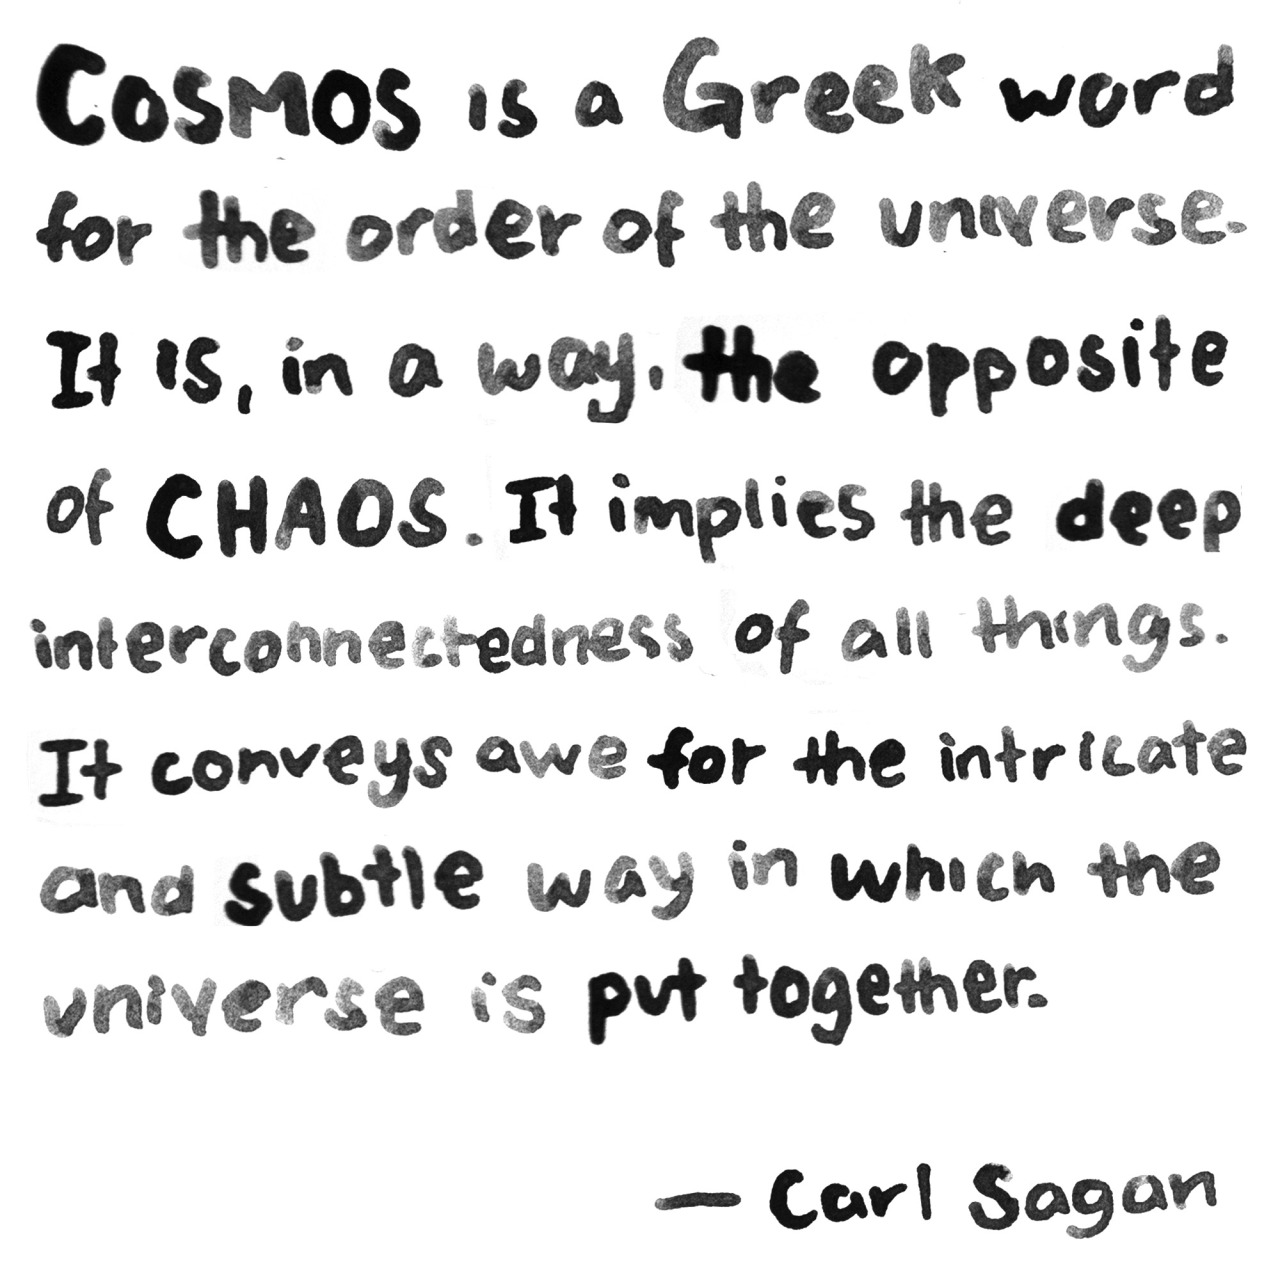 COSMOS is a Greek word
for the order of the universe.
It is, in a way, the opposite
of CHAOS. It implies the deep
interconnectedness of all things.
It conveys awe for the intricate
and subtle way in which the
universe is put together.
— Carl Sagan